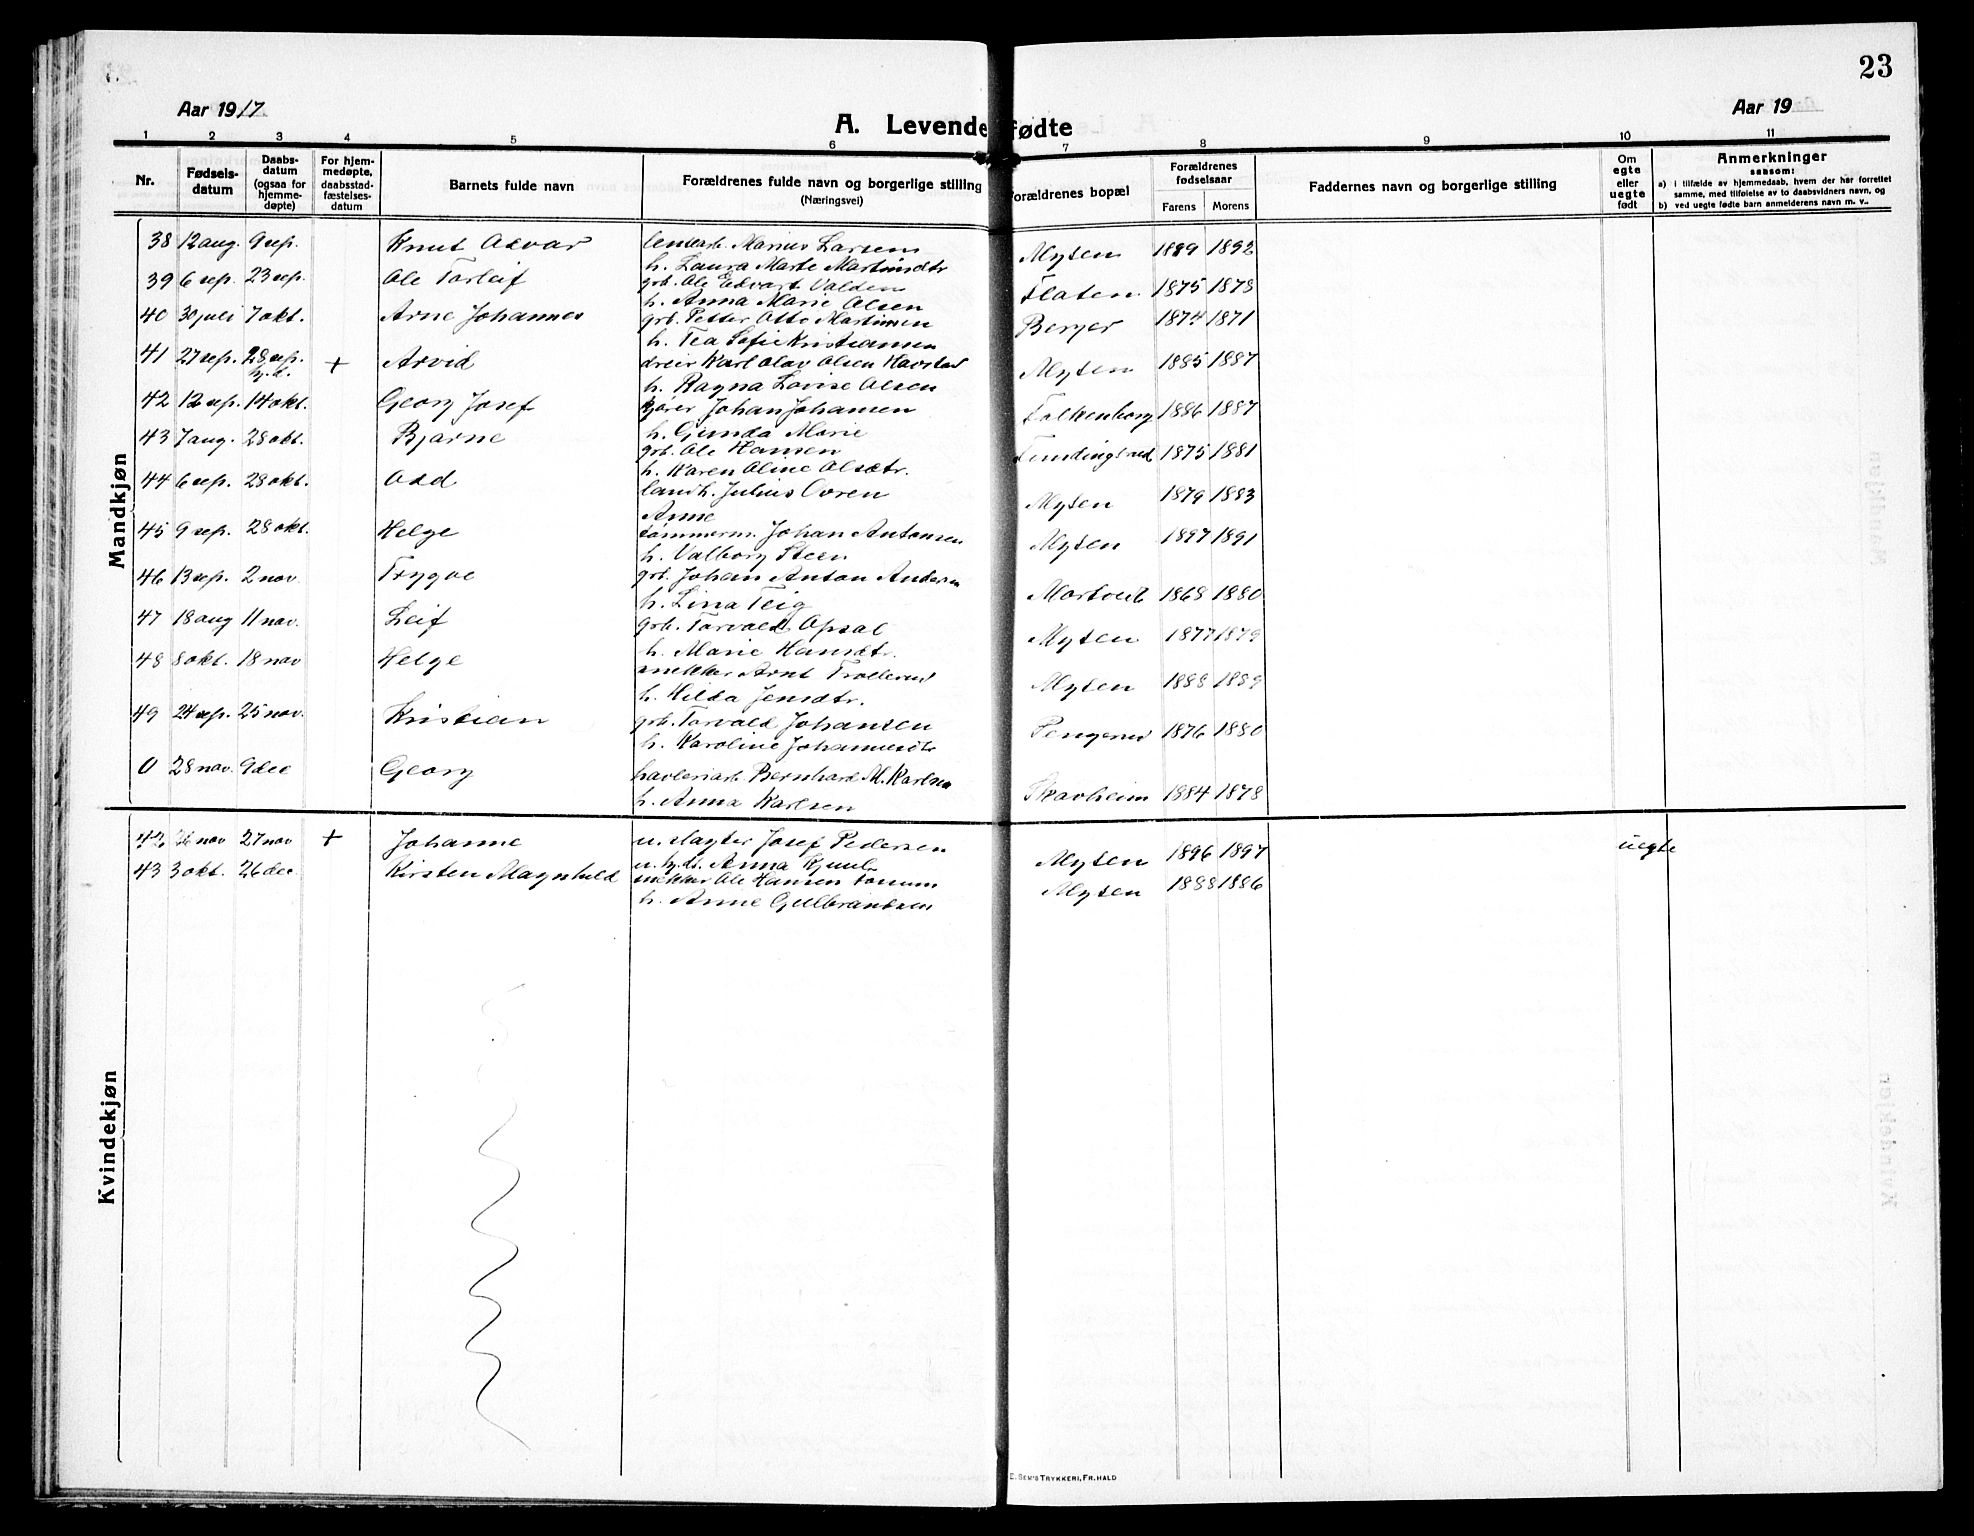 23
Aar 1917
Aar 19
A. Levendefødte
1 2 3 4 5 6 7 8 9 10 11
Nr.
Fødsels-
datum
Daabs-
datum
(ogsaa for
hjemme-
døpte)
For hjem-
medøpte,
daabsstad-
fæstelses-
datum
Barnets fulde navn
Forældrenes fulde navn og borgerlige stilling
(Næringsvei)
Forældrenes bopæl
Forældrenes
fødselsaar
Farens Morens
Faddernes navn og borgerlige stilling
Om
egte
eller
uegte
født
Anmerkninger
saasom:
a) i tilfælde av hjemmedaab, hvem der har forrettet
samme, med tilføielse av to daabsvidners navn, og
b) ved uegte fødte barn anmelderens navn m. v..
Mandkjøn
38 12 aug. 9 sep. Knut Marius Larsen Mysen 1889 1892
h. Laura Marte Martinsdtr
39 6 sep. 23 sep. Ole Torleif grb. Ole Edvart Valden Flaten 1875 1878
h. Anna Marie Olsen
40 30 juli 7 okt. Arne Johannes grb. Petter Otto Martinsen Berger 1874 1871
h. Tea Sofie Kristiansen
41 27 sep. 28 sep. + Arvid dreier Karl Olav Olsen Mysen 1885 1887
h.d.
h. Ragna Lovise Olsen
42 12 sep. 14 okt. Georg Josef kjører Johan Johansen Falkenborg 1886 1887
h. Gunda Marie
43 7 aug. 28 okt. Bjarne grb. Ole Hansen 1875 1881
h. Karen Oline Olsdtr.
44 6 sep. 28 okt. Odd landh. Julius Mysen 1879 1883
Anne
45 9 sep. 28 okt. Helge tømmerm. Johan Antonsen Mysen 1897 1891
h. Valborg Steen
46 13 sep. 2 nov Trygve grb. Johan Anton Andersen 1868 1880
h. Lina Teig
47 18 aug 11 nov. Leif grb. Torvald Opsal Mysen 1877 1879
h. Marie Hansdtr.
48 8 okt. 18 nov Helge snekker Arnt Mysen 1888 1889
h. Hilda Jensdtr.
49 24 sep. 25 nov. Kristian grb. Torvald Johansen 1876 1880
h. Karoline Johannesdtr
0 28 nov. 9 dec Georg Bernhard M. Karlsen Skavheim 1884 1878
h. Anna Karlsen
Kvindekjøn
42 26 nov 27 nov + Johanne u. slagter Josef Pedersen Mysen 1896 1897 uegte
u. Anna
43 3 okt. 26 dec. Kirsten Magnhild snekker Ole Hansen Mysen 1888 1886
h. Anne Gulbrandsen
E. SEM'S TRYKKERI, FR.HALD